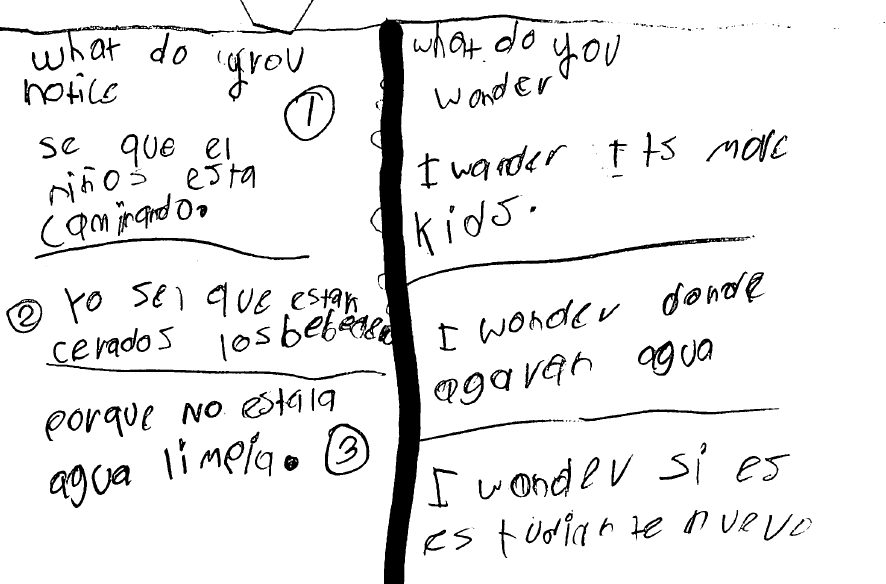 what do you
notice
①
se que el
niños esta
caminando.
② Yo sei que estan
cerados los bebedero
porque No estala
agua limpia. ③
what do you
wonder
I wander Its more
kids.
I wonder donde
agaran agua
I wonder si es
estudiante nuevo